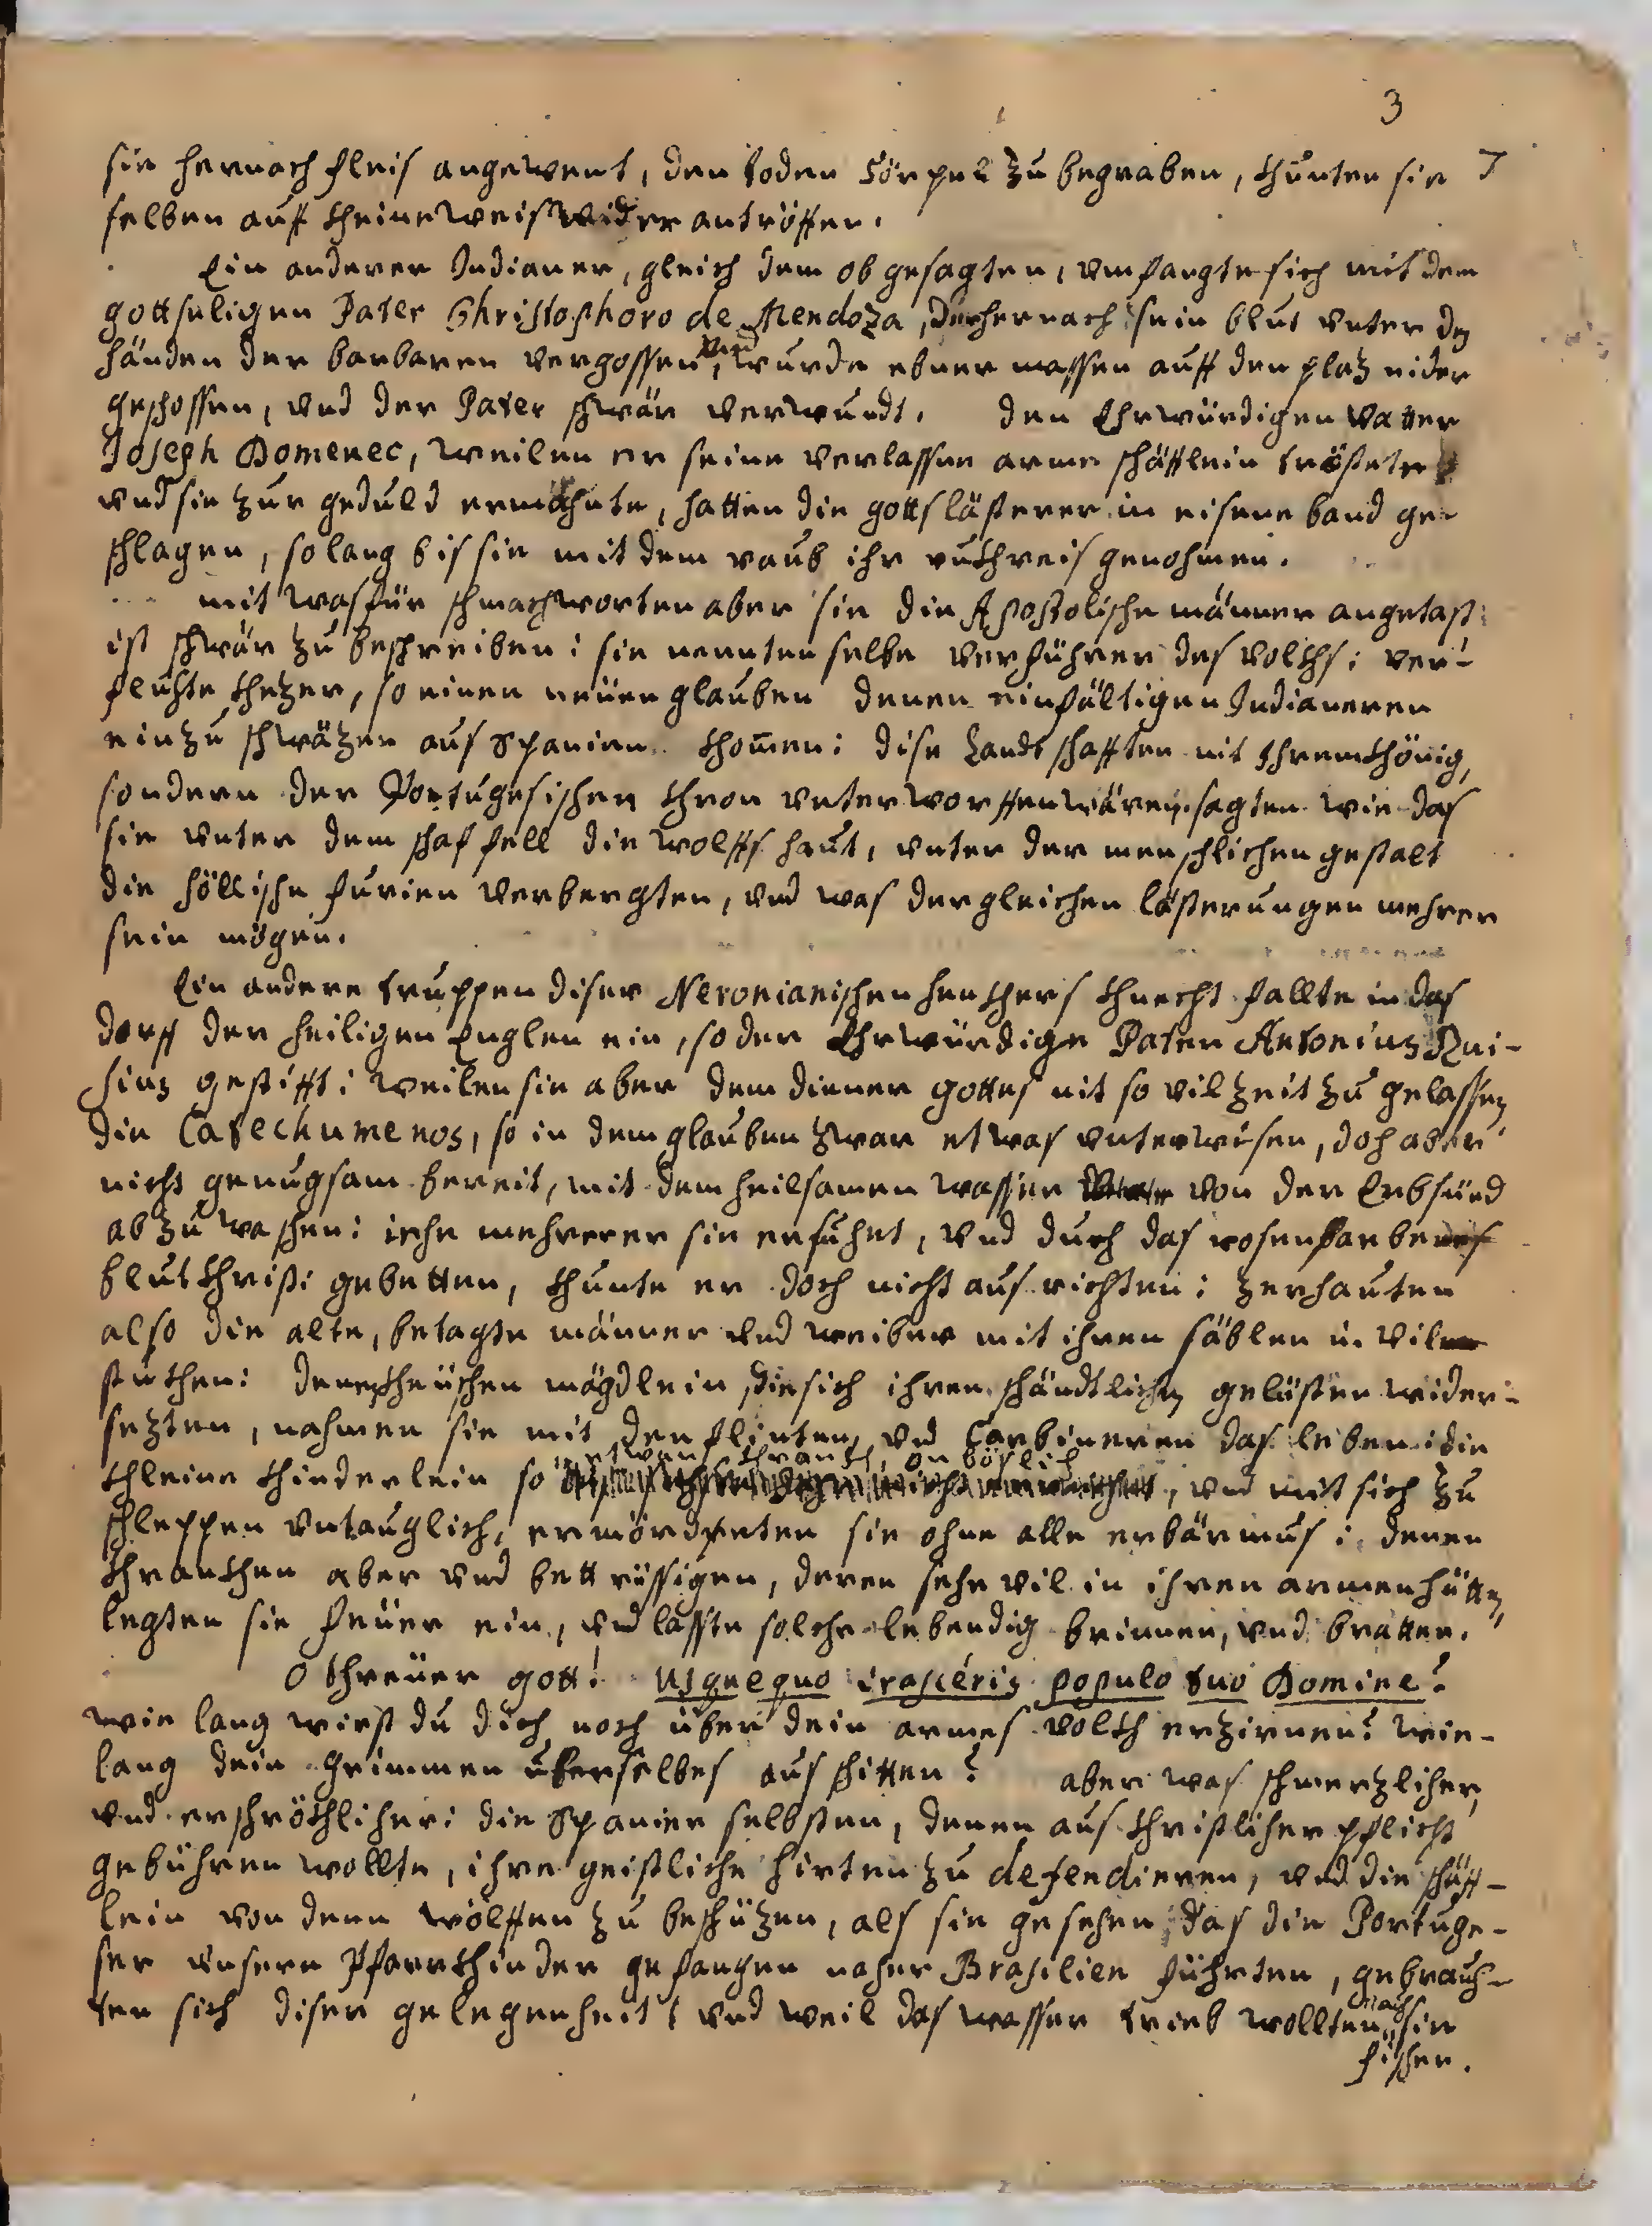 3
sie hernach fleis angewent, den toden Cörpel zu begraben, khunten sie 7
selben auff kheine weis wider antröffen.
Ein anderer Indianer, gleich dem obgesagten, vmfangte sich mit dem
gottseligen Pater Christophoro de Mendoza, der hernach sein blut vnter den
händen der barbaren vergossen, vnd wurde ebner massen auff den plaz nider
geschossen, vnd der Pater schwär verwundt. den Ehrwürdigen Vatter
Joseph Domenec, weilen er seine verlassne arme schäfflein tröstete
vnd sie zur geduld ermahnte, hatten die gottslästerer in eisene band ge-
schlagen, so lang bis sie mit dem raub ihr rukhreis genohmen.
mit was für schmachworten aber sie die Apostolische männer angetast
ist schwär zu beschreiben: sie nennten selbe verführer des volkhs: ver-
fluchte khezer, so einen neüen glauben denen einfältigen Indianeren
einzuschwäzen aus Spanien khommen: dise Landtschafften nit ihrem khönig,
sondern der Portugesischen khron vnterworffen wären: sagten wie das
sie vnter dem schaffell die wolffshaut, vnter der menschlichen gestalt
die höllische furien verbergten, vnd was dergleichen lästerungen mehrer
sein mögen.
Ein andere truppen diser Neronianischen henkhers khnecht fallte in das
dorff der heiligen Englen ein, so der Ehrwürdige Pater Antonius Rui-
sius gestifft: weilen sie aber dem diener gottes nit so vil zeit zu gelassen
die Catechumenos, so in dem glauben zwar etwas vnterwisen, doch aber
nicht genugsam bereit, mit dem heilsamen wasser von der Erbsünd
abzuwaschen: iehe mehrerer sie ersucht, vnd durch das rosenfarbe
blut Khristi gebetten, khunte er doch nicht ausrichten: zerhauten
also die alte, betagte männer vnd weiber mit ihren säblen in vil
stukhen: denen kheüschen mägdlein, die sich ihren schändtlichen gelüsten wider-
sezten, nahmen sie mit den flinten, vnd Carbineren das leben: die
khleine khinderlein so etwan khrankh, on böslich, vnd mit sich zu
schleppen vntauglich, ermördeten sie ohne alle erbärmus: denen
khrankhen aber vnd bettrüssigen, deren sehr vil in ihren armen hütten,
legten sie feüer ein, vnd lasste solche lebendig brinnen, vnd bratten.
O threuer gott! Usquequo irascéris populo tuo Domine?
wie lang wirst du dich noch über dein armes volkh erzirnen? wie-
lang dein grimmen über selbes ausschitten? aber was schmerzlicher,
vnd erschrökhlicher: die Spanier selbsten, denen aus khristlicher pflicht
gebühren wollte, ihre geistliche hirten zu defendieren, vnd die schäff-
lein von denn wölffen zu beschüzen, als sie gesehen, das die Portuge-
ser vnsere Pfarrkhinder gefangen naher Brasilien führten, gebrauch-
ten sich diser gelegenheit, vnd weil das wasser trieb wollten auch sie
fischen.